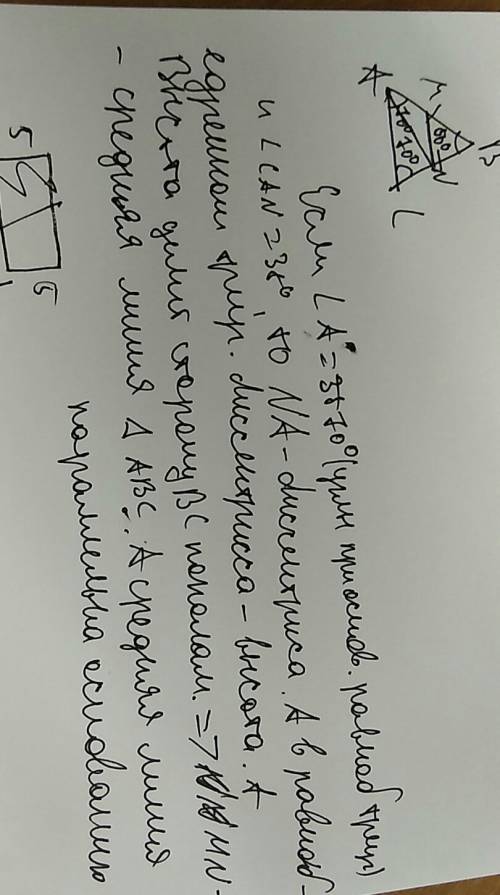 B
M
60°
N
A
70° 70°
C
Если ∠A = 70° (углы при основ. равноб треуг)
и ∠CAN = 35°, то NA - биссектриса. А в равноб-
едренном треуг. биссектрисса - высота. А
высота делит сторону BC пополам. => MN -
- средняя линия Δ ABC. А средняя линия
параллельна основанию
5
5